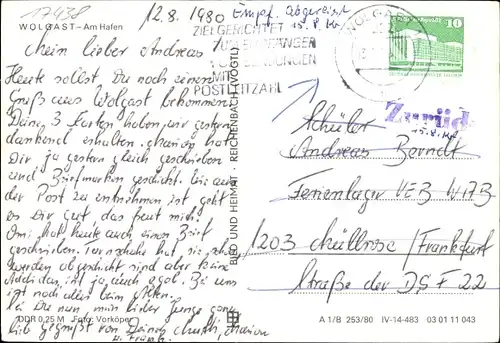 17438
WOLGAST – Am Hafen
12.8.1980
Empf. abgereist
15.8.
ZIEL GERICHTET
ZUM EMPFÄNGER
SENDUNGEN
MIT
POSTLEITZAHL
WOLGAST
10
Mein lieber Andreas
Heute sollst Du noch einen
Gruß aus Wolgast bekommen.
Deine 3 Karten haben wir gestern
dankend erhalten. hat
Dir ja gestern gleich geschrieben
und Briefmarken geschickt. Wie aus
der Post zu entnehmen ist geht
es Dir gut, das freut mich.
Omi hat heute auch einen Brief
geschrieben. Turnschuhe hat sie
werden abgeschickt sind aber keine
das ist ja auch egal. Bei uns
ist noch alles beim Alten.
Du nun, mein lieber Junge ganz
lieb gegrüßt von Deiner Mutti,
u. Frank
BILD UND HEIMAT · REICHENBACH (VOGTL)
Zurück
15.8.
Schüler
Andreas Berndt
Ferienlager VEB WAB
1203 Müllrose / Frankfurt
Straße der DSF 22
DDR 0,25 M Foto: Vorköper
A 1/B 253/80 IV-14-483 03 01 11 043